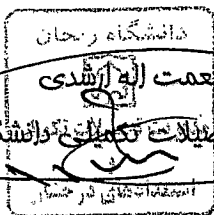 دانشگاه زنجان
نعمت اله ارشدی
تحصیلات تکمیلی دانشگاه